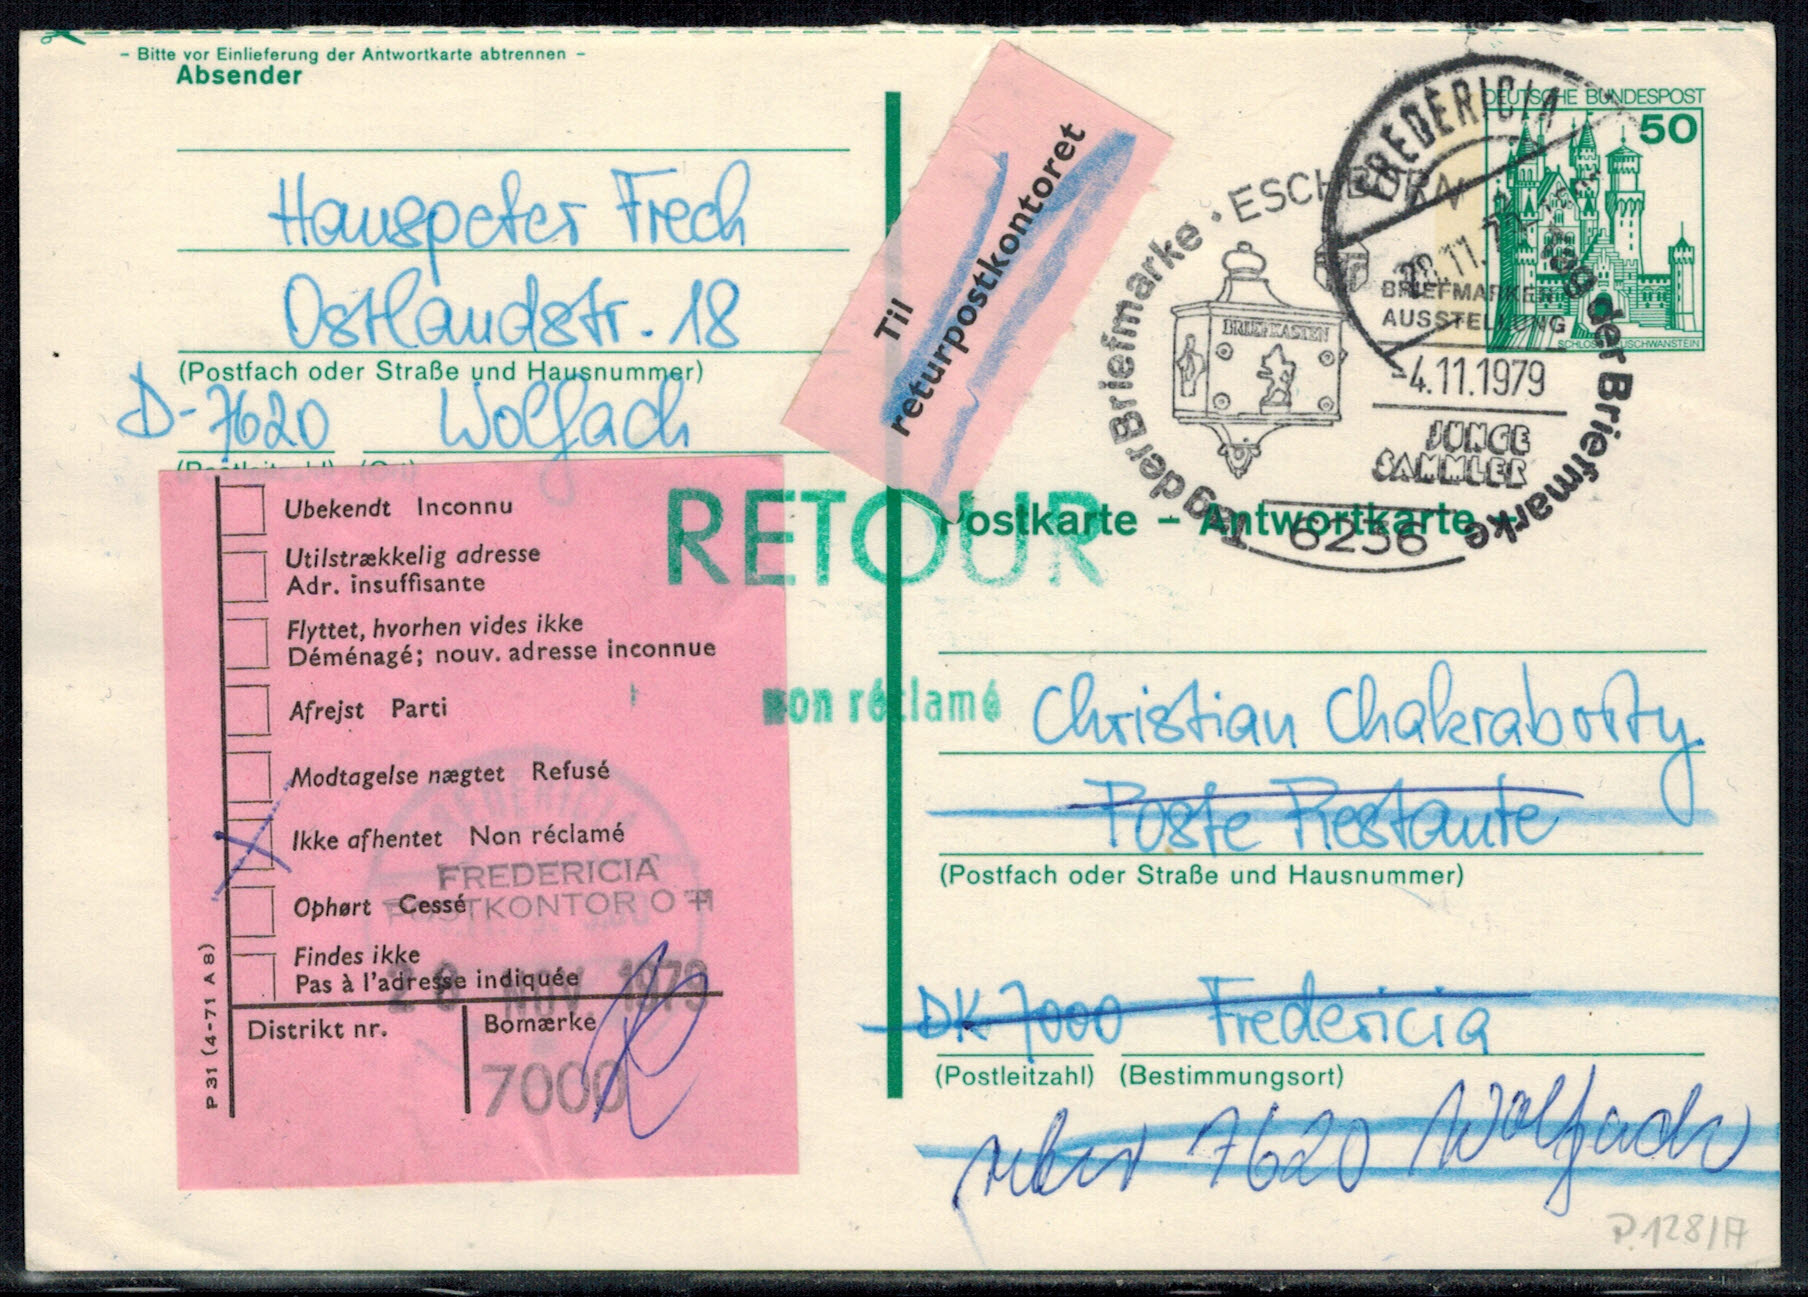 - Bitte vor Einlieferung der Antwortkarte abtrennen -
Absender
Hanspeter Frech
Ostlandstr. 18
(Postfach oder Straße und Hausnummer)
D-7620 Wolfach
(Postleitzahl) (Ort)
Til
returpostkontoret
FREDERICIA
DEUTSCHE BUNDESPOST
50
SCHLOSS NEUSCHWANSTEIN
Tag der Briefmarke · Tag der Briefmarke
BRIEFKASTEN
BRIEFMARKEN
AUSSTELLUNG
-4.11.1979
JUNGE
SAMMLER
6236
RETOUR
Postkarte - Antwortkarte
non réclamé
Christian Chakraborty
Poste Restante
(Postfach oder Straße und Hausnummer)
DK 7000 Fredericia
(Postleitzahl) (Bestimmungsort)
retur 7620 Wolfach
P.128/A
Ubekendt Inconnu
Utilstrækkelig adresse
Adr. insuffisante
Flyttet, hvorhen vides ikke
Déménagé; nouv. adresse inconnue
Afrejst Parti
Modtagelse nægtet Refusé
Ikke afhentet Non réclamé
Ophørt Cessé
Findes ikke
Pas à l'adresse indiquée
Distrikt nr. Bomærke
P 31 (4-71 A8)
FREDERICIA
POSTKONTOR
28 NOV. 1979
7000